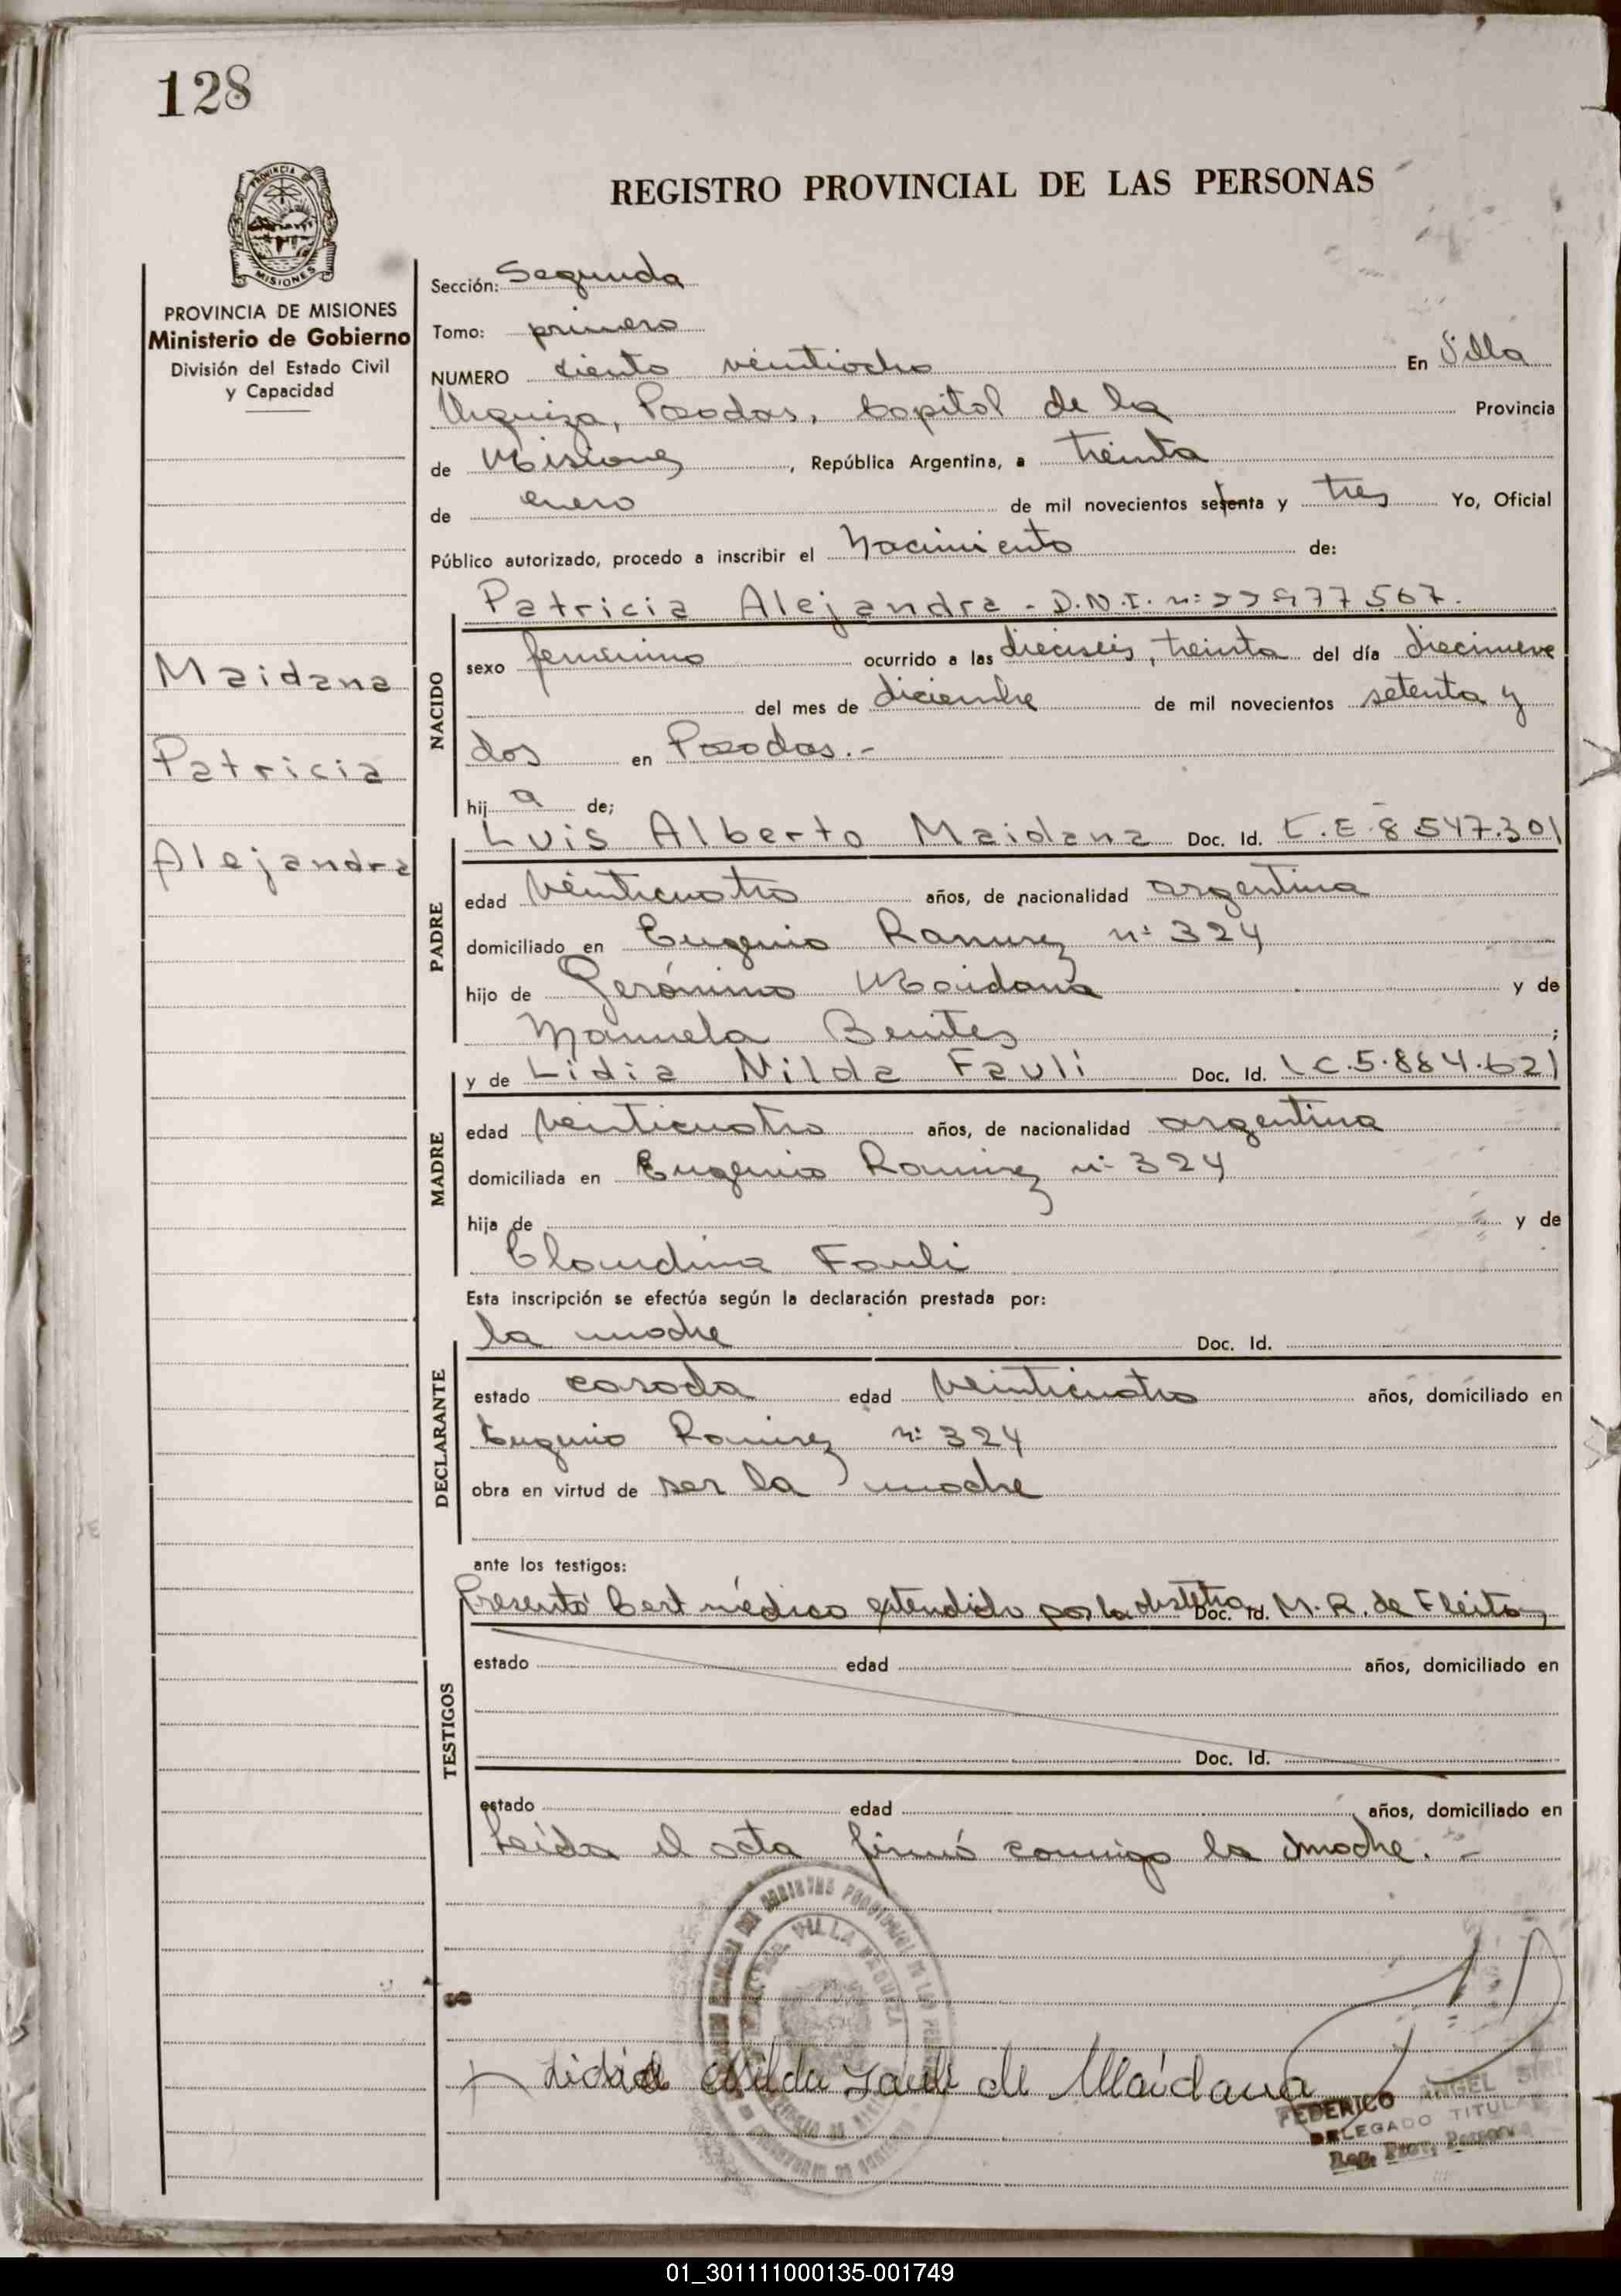 128
PROVINCIA DE
MISIONES
REGISTRO PROVINCIAL DE LAS PERSONAS
PROVINCIA DE MISIONES
Ministerio de Gobierno
División del Estado Civil
y Capacidad
Maidana
Patricia
Alejandra
Sección: Segunda
Tomo: primero
NUMERO ciento veintiocho En Villa
Urquiza, Posadas, Capital de la Provincia
de Misiones, República Argentina, a treinta
de enero de mil novecientos setenta y tres Yo, Oficial
Público autorizado, procedo a inscribir el Nacimiento de:
Patricia Alejandra - D.N.I. nº
NACIDO
sexo femenino ocurrido a las dieciseis, treinta del día diecinueve
del mes de diciembre de mil novecientos setenta y
dos en Posadas.-
hija de;
PADRE
Luis Alberto Maidana Doc. Id. L.E. 8.547.301
edad veinticuatro años, de nacionalidad argentina
domiciliado en Eugenio Ramirez nº 324
hijo de Gerónimo Maidana y de
Manuela Benites ;
MADRE
y de Lidia Nilda Fauli Doc. Id. LC.5.884.621
edad veinticuatro años, de nacionalidad argentina
domiciliada en Eugenio Ramirez nº 324
hija de y de
Claudina Fauli
Esta inscripción se efectúa según la declaración prestada por:
DECLARANTE
la madre Doc. Id.
estado casada edad veinticuatro años, domiciliado en
Eugenio Ramirez nº 324
obra en virtud de ser la madre
ante los testigos:
TESTIGOS
Presentó Cert médico extendido por la obstetra Doc. Id. M. R. de Fleitas
estado edad años, domiciliado en
Doc. Id.
estado edad años, domiciliado en
Leída el acta firmó conmigo la madre. -
VILLA URQUIZA
Lidia Nilda Fauli de Maidana
FEDERICO ANGEL
DELEGADO TITULAR
Reg. Prov. Personas
01_301111000135-001749